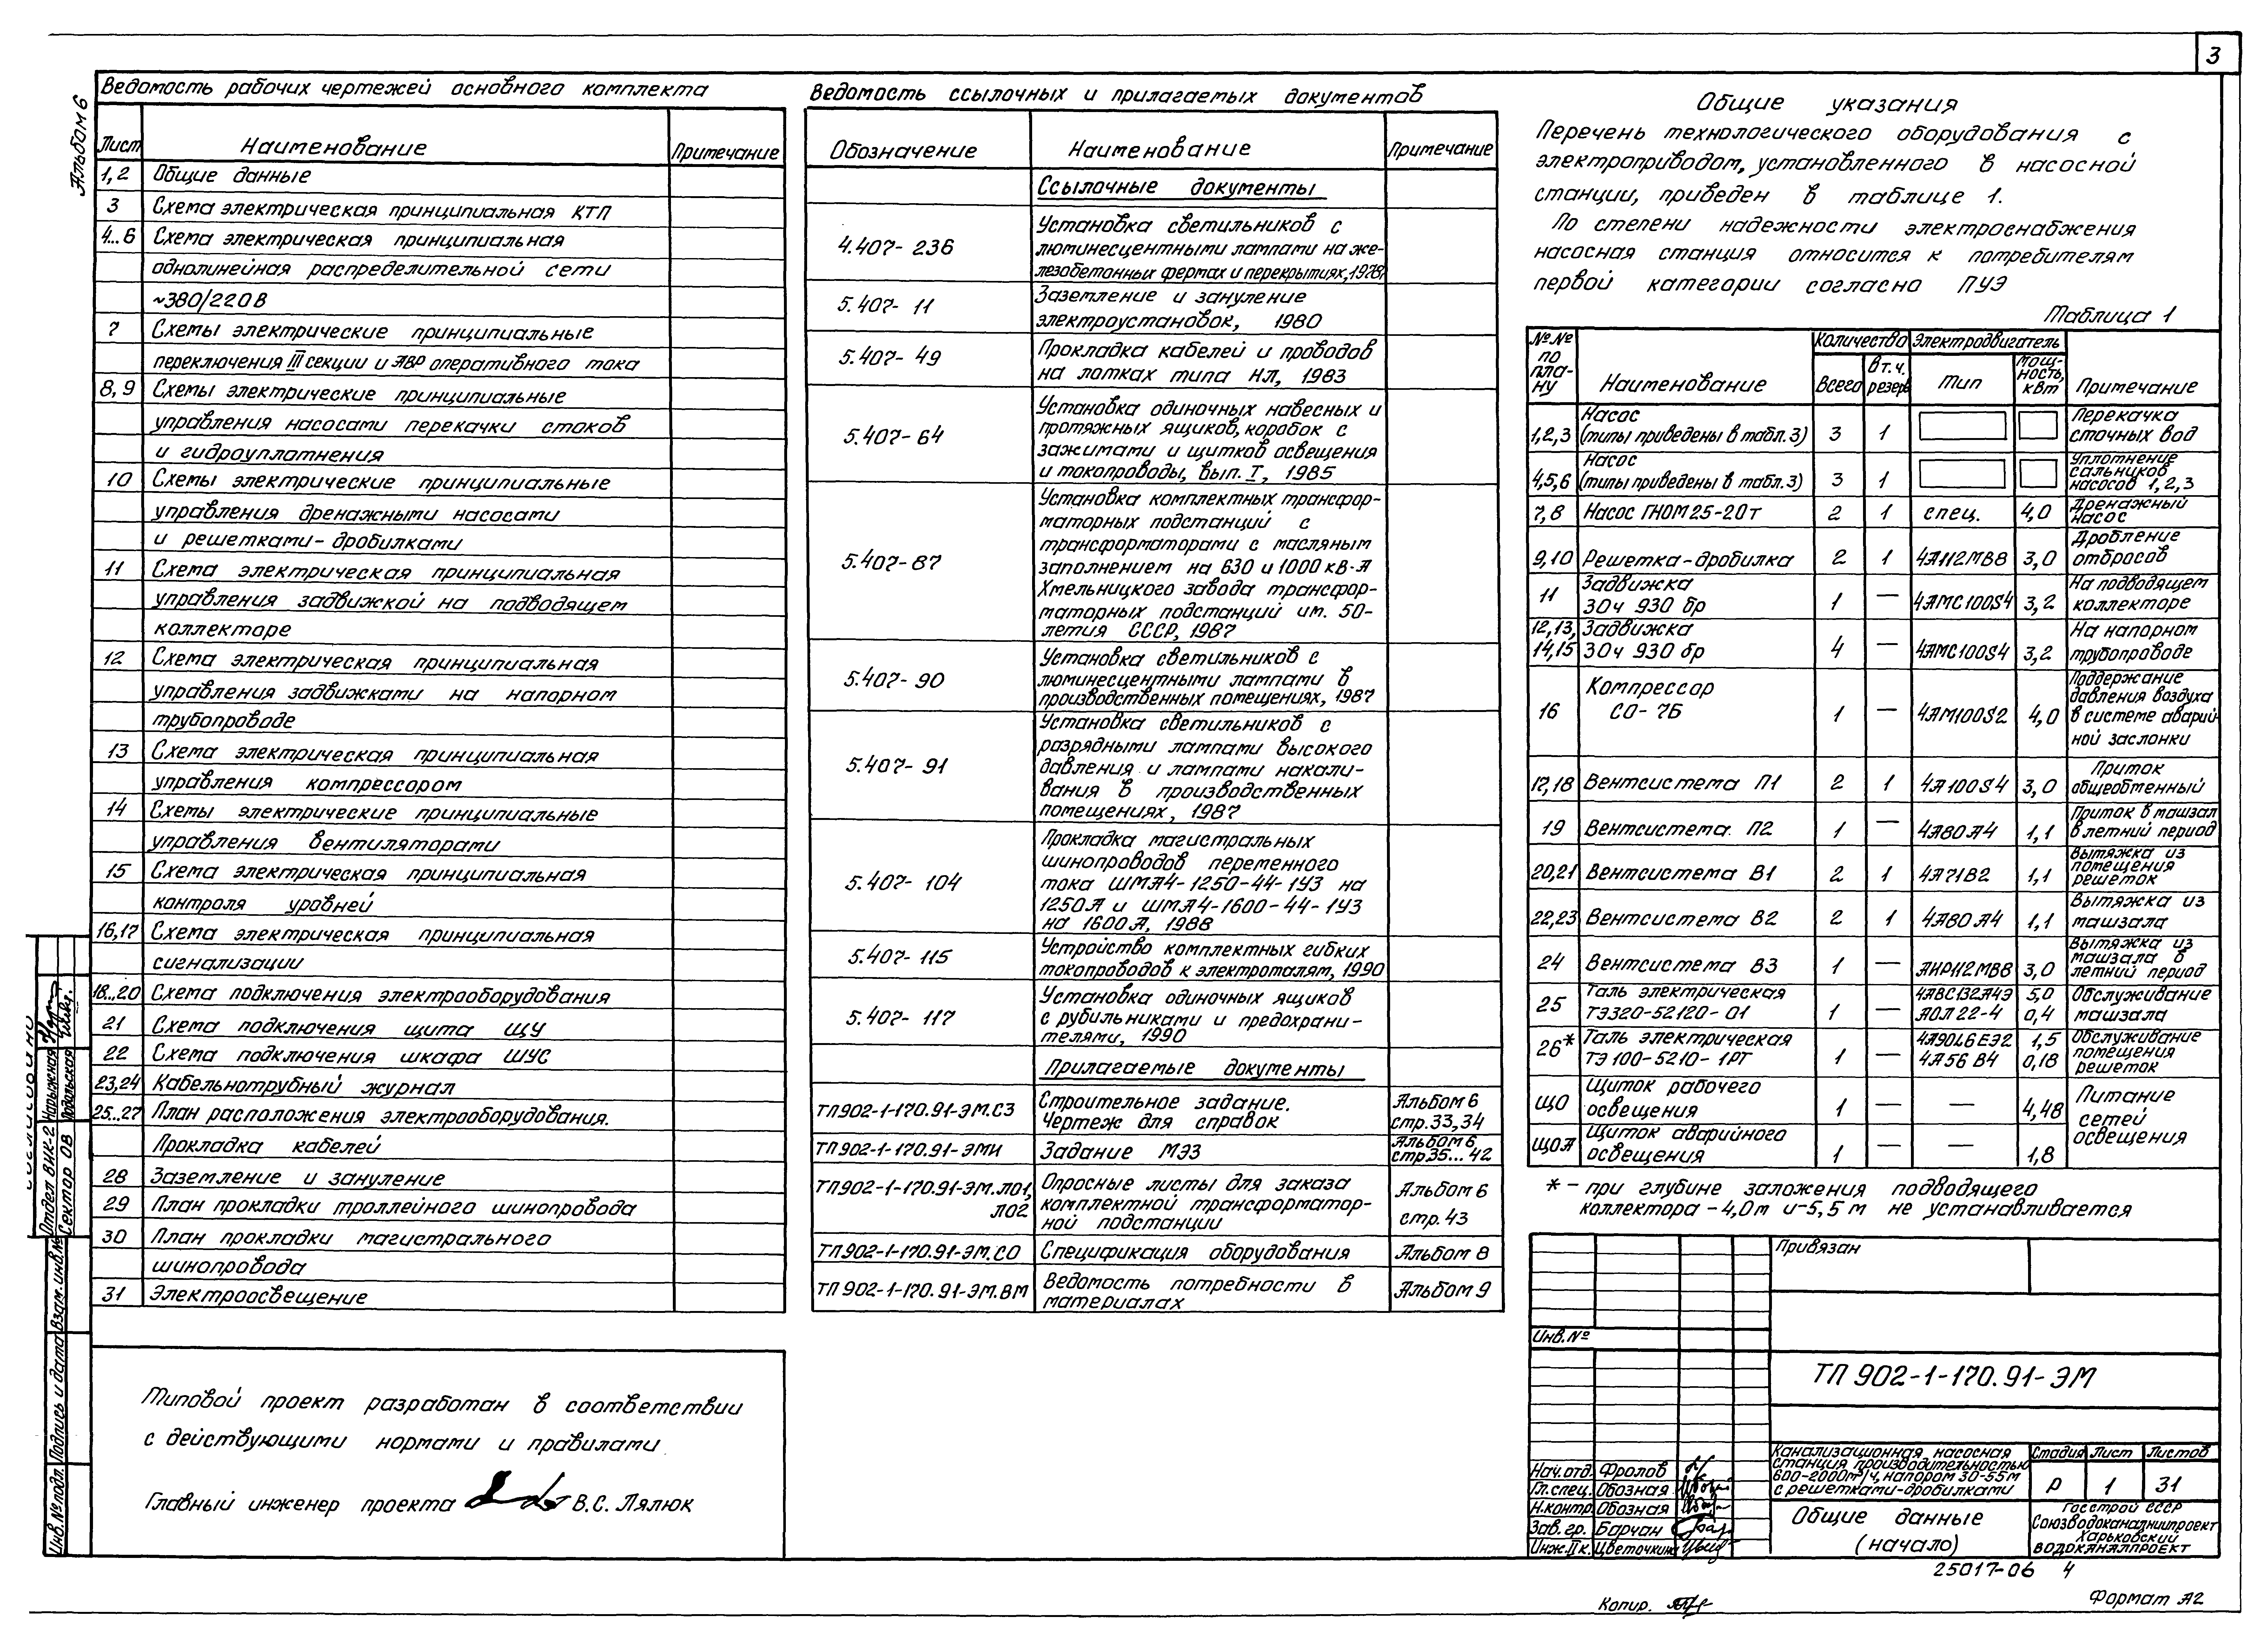 3
Альбом 6
Ведомость рабочих чертежей основного комплекта
Лист Наименование Примечание
1,2 Общие данные
3 Схема электрическая принципиальная КТП
4...6 Схема электрическая принципиальная
однолинейная распределительной сети
~380/220В
7 Схемы электрические принципиальные
переключения III секции и АВР оперативного тока
8,9 Схемы электрические принципиальные
управления насосами перекачки стоков
и гидроуплотнения
10 Схемы электрические принципиальные
управления дренажными насосами
и решетками-дробилками
11 Схема электрическая принципиальная
управления задвижкой на подводящем
коллекторе
12 Схема электрическая принципиальная
управления задвижками на напорном
трубопроводе
13 Схема электрическая принципиальная
управления компрессором
14 Схемы электрические принципиальные
управления вентиляторами
15 Схема электрическая принципиальная
контроля уровней
16,17 Схема электрическая принципиальная
сигнализации
18...20 Схема подключения электрооборудования
21 Схема подключения щита ЩУ
22 Схема подключения шкафа ШУС
23,24 Кабельнотрубный журнал
25...27 План расположения электрооборудования.
Прокладка кабелей
28 Заземление и зануление
29 План прокладки троллейного шинопровода
30 План прокладки магистрального
шинопровода
31 Электроосвещение
Типовой проект разработан в соответствии
с действующими нормами и правилами
Главный инженер проекта В.С. Лялюк
Ведомость ссылочных и прилагаемых документов
Обозначение Наименование Примечание
Ссылочные документы
4.407-236 Установка светильников с
люминесцентными лампами на же-
лезобетонных фермах и перекрытиях, 1978г
5.407-11 Заземление и зануление
электроустановок, 1980
5.407-49 Прокладка кабелей и проводов
на лотках типа НЛ, 1983
5.407-64 Установка одиночных навесных и
протяжных ящиков, коробок с
зажимами и щитков освещения
и токопроводы, вып. I, 1985
5.407-87 Установка комплектных трансфор-
маторных подстанций с
трансформаторами с масляным
заполнением на 630 и 1000 кВ·А
Хмельницкого завода трансфор-
маторных подстанций им. 50-
летия СССР, 1987
5.407-90 Установка светильников с
люминесцентными лампами в
производственных помещениях, 1987
5.407-91 Установка светильников с
разрядными лампами высокого
давления и лампами накали-
вания в производственных
помещениях, 1987
5.407-104 Прокладка магистральных
шинопроводов переменного
тока ШМА4-1250-44-1У3 на
1250А и ШМА4-1600-44-1У3
на 1600А, 1988
5.407-115 Устройство комплектных гибких
токопроводов к электроталям, 1990
5.407-117 Установка одиночных ящиков
с рубильниками и предохрани-
телями, 1990
Прилагаемые документы
ТП902-1-170.91-ЭМ.СЗ Строительное задание. Альбом 6
Чертеж для справок стр. 33,34
ТП902-1-170.91-ЭМИ Задание МЭЗ Альбом 6, стр 35... 42
ТП902-1-170.91-ЭМ.ЛО1, ЛО2 Опросные листы для заказа Альбом 6
комплектной трансформатор- стр. 43
ной подстанции
ТП902-1-170.91-ЭМ.СО Спецификация оборудования Альбом 8
ТП 902-1-170.91-ЭМ.ВМ Ведомость потребности в Альбом 9
материалах
Общие указания
Перечень технологического оборудования с
электроприводом, установленного в насосной
станции, приведен в таблице 1.
По степени надежности электроснабжения
насосная станция относится к потребителям
первой категории согласно ПУЭ
Таблица 1
№№ по пла-ну Наименование Количество Всего В т.ч. резерв Электродвигатель Тип Мощ-ность, кВт Примечание
1,2,3 Насос (типы приведены в табл. 3) 3 1 Перекачка сточных вод
4,5,6 Насос (типы приведены в табл. 3) 3 1 Уплотнение сальников насосов 1,2,3
7,8 Насос ГНОМ 25-20т 2 1 спец. 4,0 Дренажный насос
9,10 Решетка-дробилка 2 1 4А112МВ8 3,0 Дробление отбросов
11 Задвижка 30ч 930 бр 1 — 4АМС100S4 3,2 На подводящем коллекторе
12,13, 14,15 Задвижка 30ч 930 бр 4 — 4АМС100S4 3,2 На напорном трубопроводе
16 Компрессор СО-7Б 1 — 4АМ100S2 4,0 Поддержание давления воздуха в системе аварий-ной заслонки
17,18 Вентсистема П1 2 1 4А100S4 3,0 Приток общеобменный
19 Вентсистема П2 1 — 4А80А4 1,1 Приток в машзал в летний период
20,21 Вентсистема В1 2 1 4А71В2 1,1 Вытяжка из помещения решеток
22,23 Вентсистема В2 2 1 4А80А4 1,1 Вытяжка из машзала
24 Вентсистема В3 1 — АИР112МВ8 3,0 Вытяжка из машзала в летний период
25 Таль электрическая ТЭ320-52120-01 1 — 4АВС132А4Э АОЛ22-4 5,0 0,4 Обслуживание машзала
26* Таль электрическая ТЭ100-5210-1РТ 1 — 4А90L6ЕЭ2 4А56В4 1,5 0,18 Обслуживание помещения решеток
ЩО Щиток рабочего освещения 1 — — 4,48 Питание сетей освещения
ЩОА Щиток аварийного освещения 1 — — 1,8
* – при глубине заложения подводящего
коллектора – 4,0м и – 5,5 м не устанавливается
Привязан
Инв. №
ТП 902-1-170.91-ЭМ
Нач. отд. Фролов
Гл. спец. Обозная
Н.контр. Обозная
Зав. гр. Барчан
Инж. II к.
Канализационная насосная
станция производительностью
600-2000м³/ч, напором 30-55м
с решетками-дробилками
Стадия Лист Листов
Р 1 31
Общие данные
(начало)
Госстрой СССР
Союзводоканалниипроект
Харьковский
Водоканалпроект
25017-06 4
Копир.
Формат А2
Отдел ВИК-2 Нарыжная
Сектор ОВ Подольская
Инв. № подл. Подпись и дата Взам. инв. №